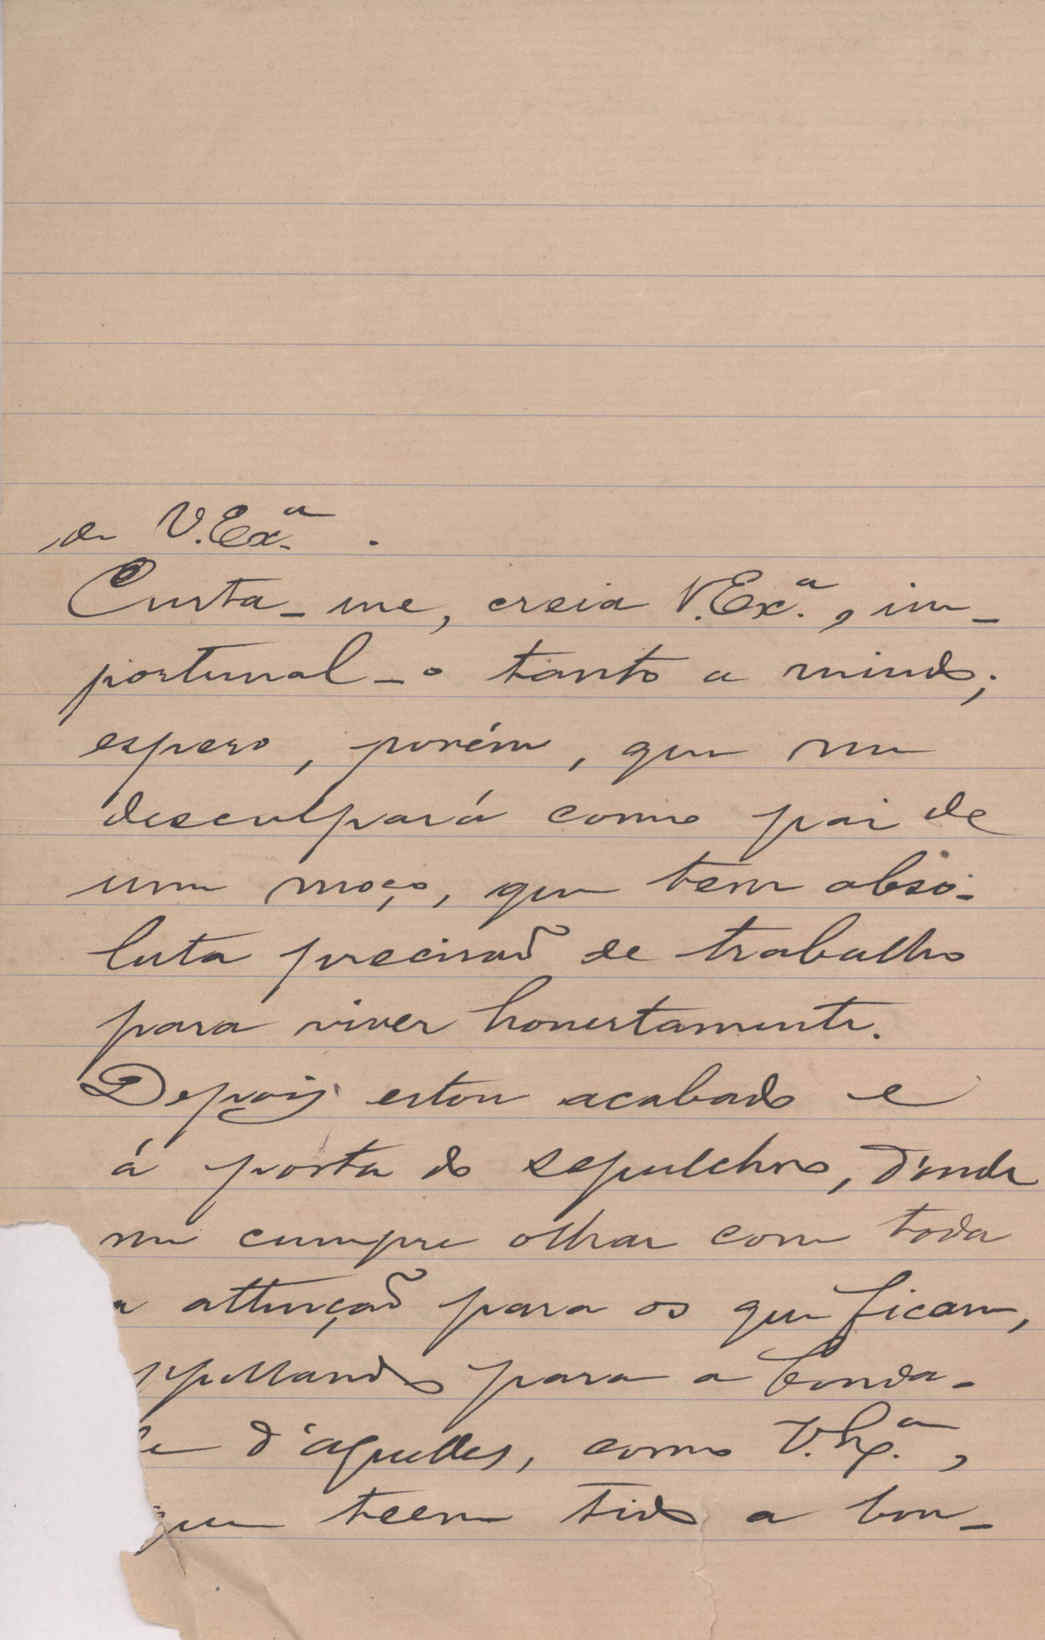 de V. Exª.
Custa-me, creia V. Exª., im-
portunal-o tanto a miudo;
espero, porém, que me
desculpará como pai de
um moço, que tem abso-
luta precisaõ de trabalho
para viver honestamente.
Depois estou acabado e
á porta do sepulchro, d'onde
me cumpre olhar com toda
a attençaõ para os que ficam,
ppellando para a bonda-
de d'aquelles, como V. Exª.,
que teem tido a bon-